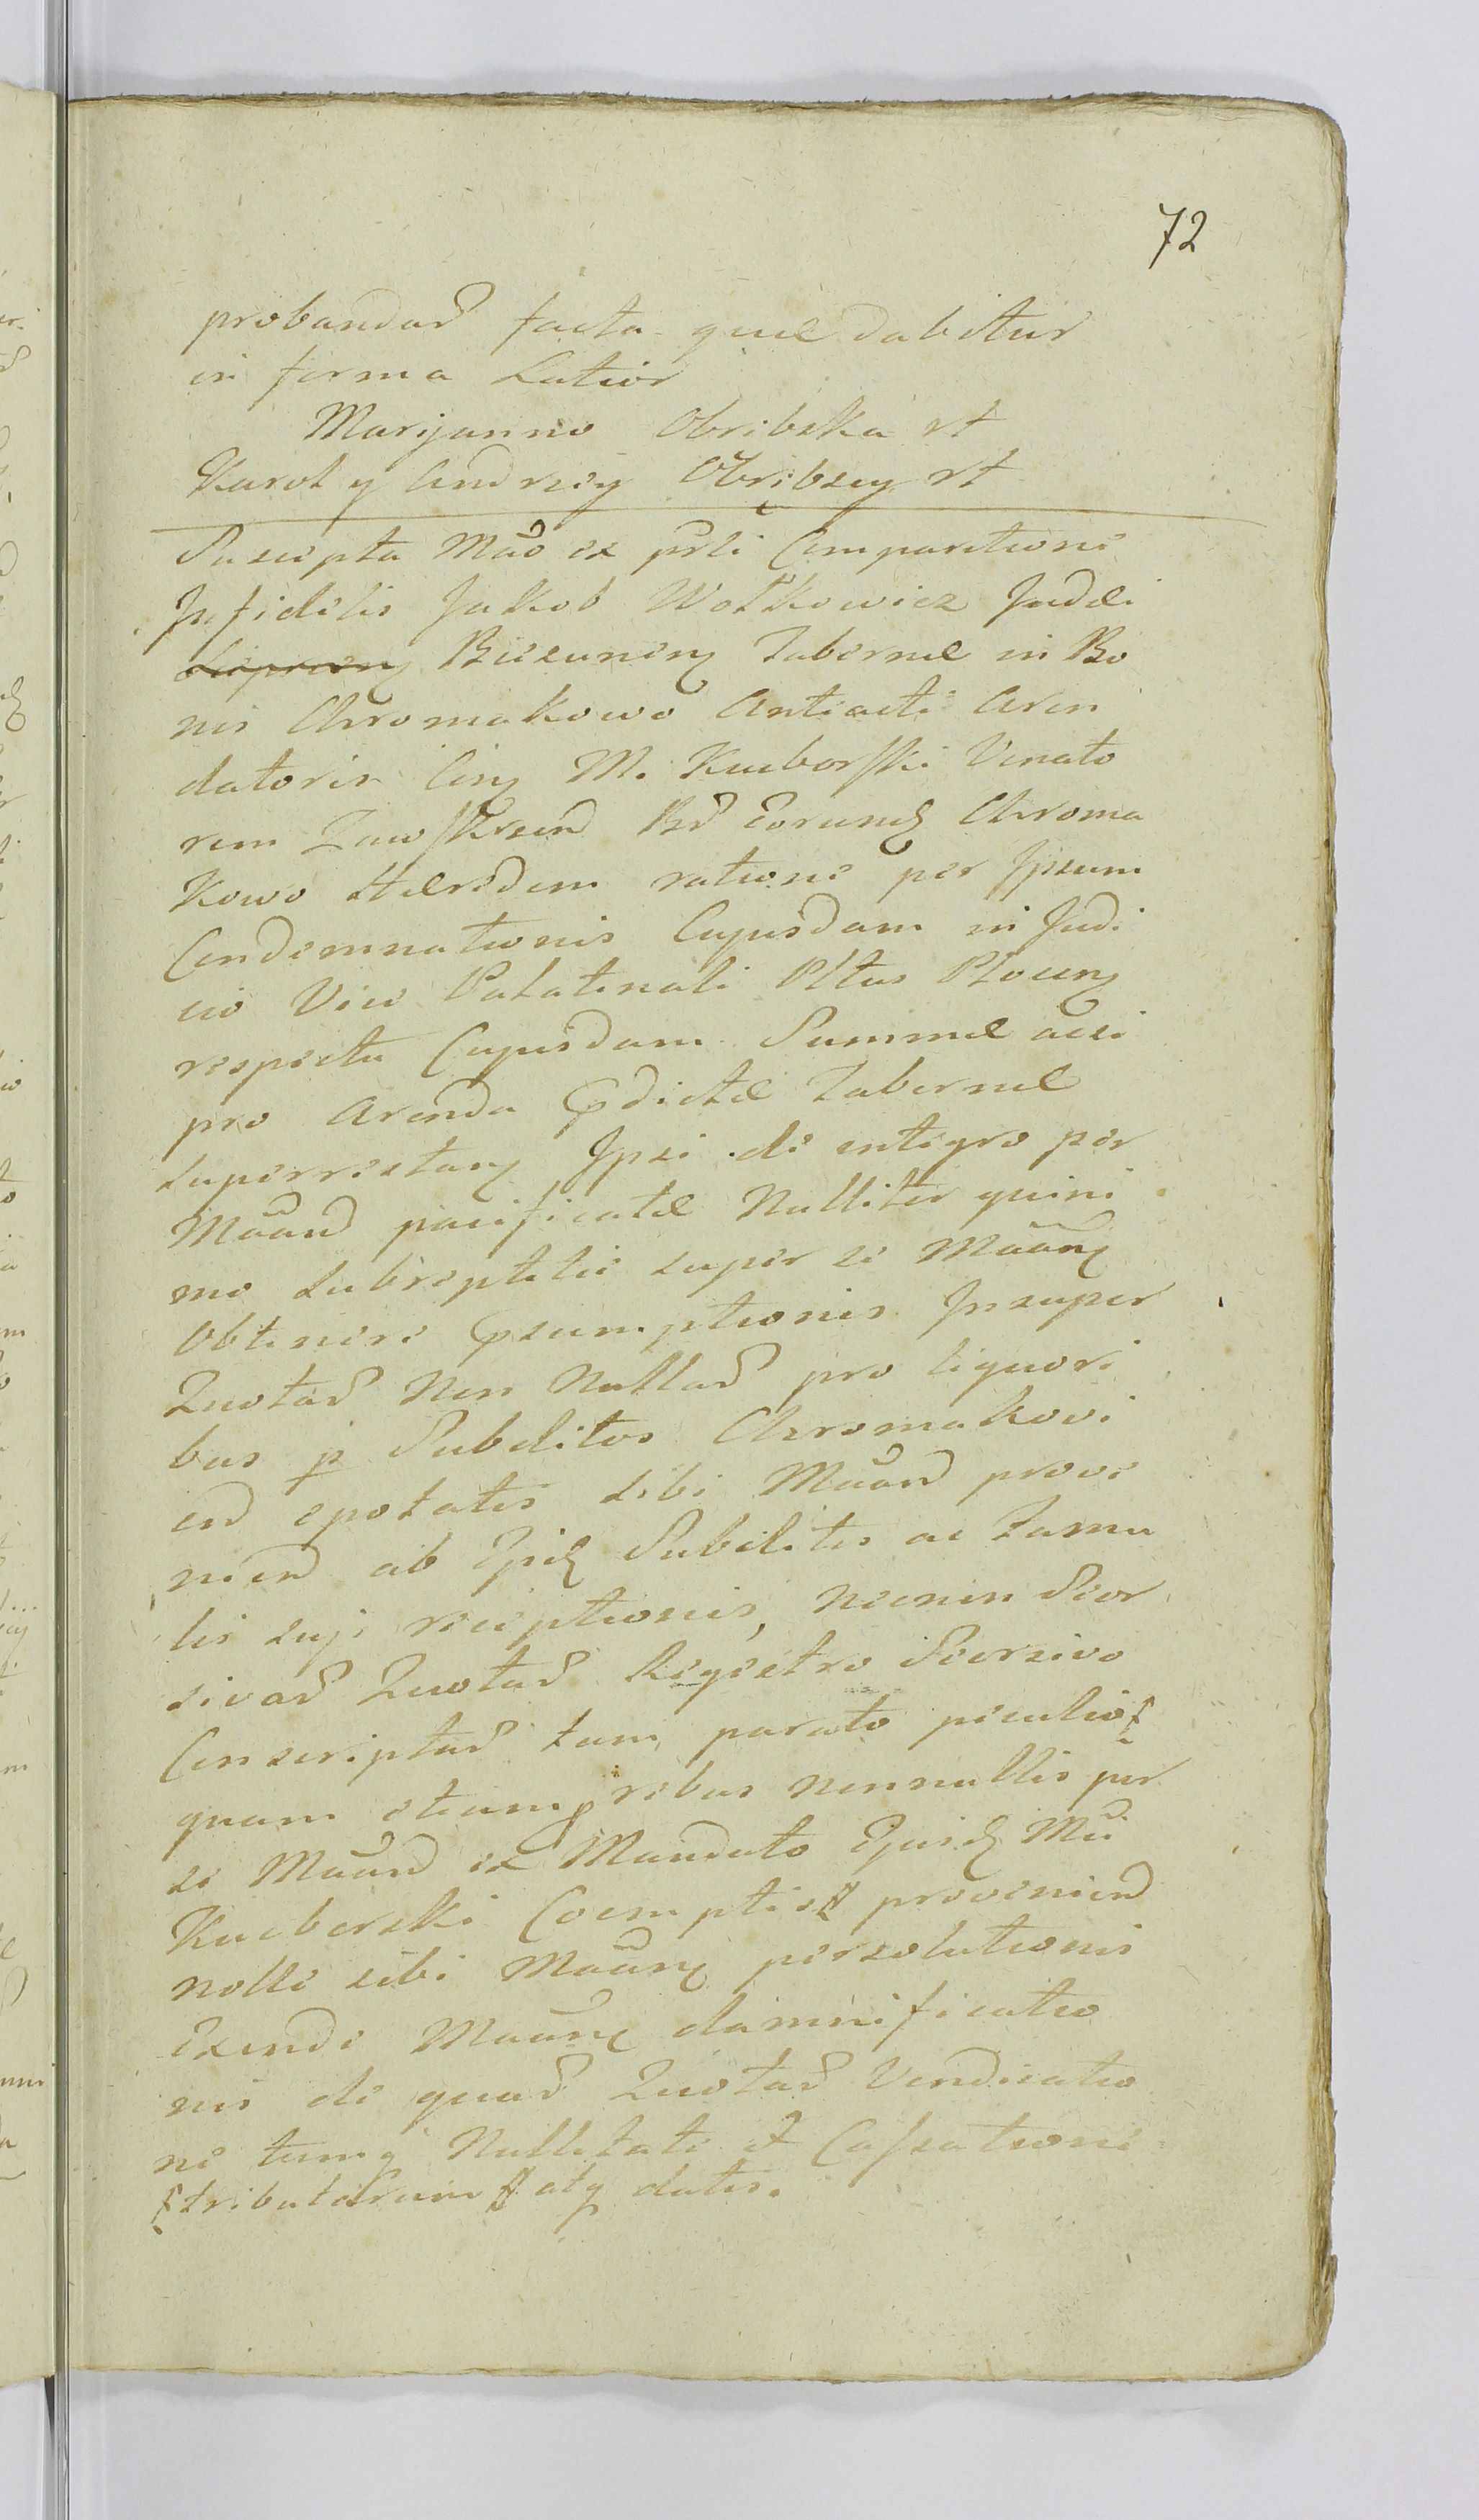 72
probandas facta quae dabitur
in forma Latior
Maryanna Obribska rt
Karol y Andrzey Obribscy rt
Suscepta Mão ex psli Comparitione
Infidelis Jakob Wolkowicz Judei
Biezunens Tabernae in Bo
nis Chromakowo Antiacti Aren
datoris Cing M. Kucborski Venato
rem Zawskrzen Bd eorund Chroma
kowo Haeredem ratione per Ipsum
Condemnationis Cujusdam in Judi
cio Vice Palatinali Pltus Plocen
respectu Cujusdam Summae acsi
pro Arenda pdictae Tabernae
superrestan Ipsi de integro per
Mãan pacificatae Nulliter quini
mo subreptitie super se Mãan
Obtinere psumptionis Insuper
Quotas Non Nullas pro liquori
bus p Subditos Chromakovi
en epotatis sibi Mãan prove
nien ab Ipis Subditis ac Famu
lis suis receptionis, necnon Scor
sivas Quotas Registro Scorsivo
Conscriptas tam parato peculio
quam etiam p rebus nonnullis per
se Mãan ex Mandato Ejusd Mci
Kucborski Coemptis provenien
nolle sibi Mãan persolutionis
Exinde Mãan damnificatio
nis de quas Quotas Vendicatio
ne tumq Nullitate et Cassatione
tributarum atq datis.